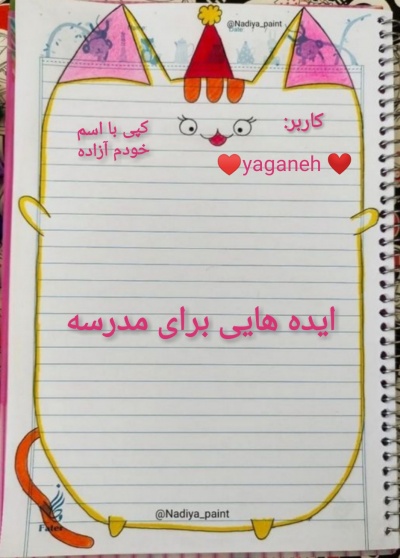 @Nadiya_paint
Date
کاربر:
❤️yaganeh ❤️
کپی با اسم
خودم آزاده
ایده هایی برای مدرسه
@Nadiya_paint
Fater